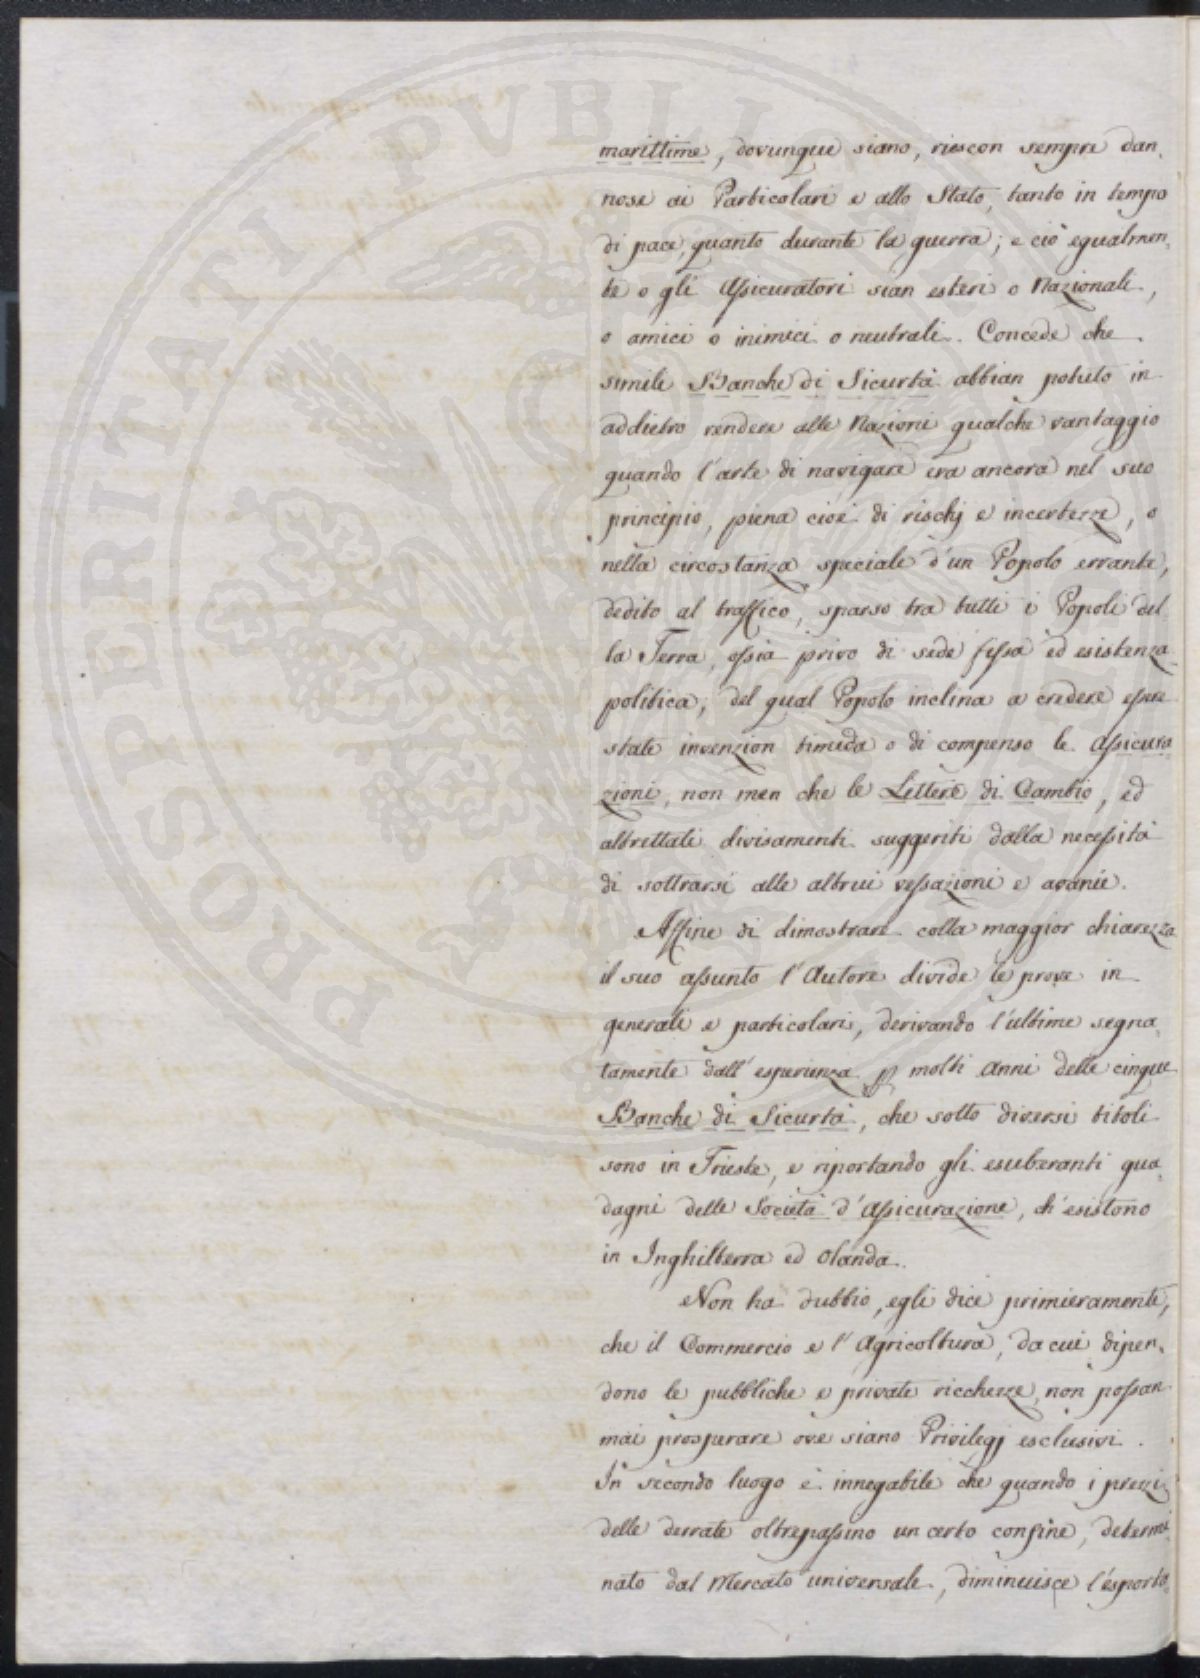 marittime, dovunque siano, riescon sempre dan,
nose ai Particolari e allo Stato, tanto in tempo
di pace, quanto durante la guerra; e ciò egualmen,
te o gli Assicuratori sian esteri o Nazionali,
o amici o inimici o neutrali. Concede che
simile Banche di Sicurtà abbian potuto in
addietro rendere alle Nazioni qualche vantaggio
quando l'arte di navigare era ancora nel suo
principio, piena cioè di rischj e incertezze, o
nella circostanza speciale d'un Popolo errante,
dedito al traffico, sparso tra tutti i Popoli del
la Terra, ossia privo di sede fissa ed esistenza
politica; del qual Popolo inclina a credere essere
state invenzion timida o di compenso le Assicura
zioni, non men che le Lettere di Cambio, ed
altrettali divisamenti suggeriti dalla necessità
di sottrarsi alle altrui vessazioni e avanie.
Affine di dimostrare colla maggior chiarezza
il suo assunto l'Autore divide le prove in
generali e particolari, derivando l'ultime segna,
tamente dall'esperienza p molti Anni delle cinque
Banche di Sicurtà, che sotto diversi titoli
sono in Trieste, e riportando gli esuberanti gua,
dagni delle Società d'Assicurazione, ch'esistono
in Inghilterra ed Olanda.
Non ha dubbio, egli dice primieramente,
che il Commercio e l'Agricoltura, da cui dipen,
dono le pubbliche e private ricchezze, non possan
mai prosperare ove siano Privilegj esclusivi.
In secondo luogo è innegabile che quando i prezzi
delle derrate oltrepassino un certo confine, determi
nato dal Mercato universale, diminuisce l'esporta,
PROSPERITATI PVBLICAE